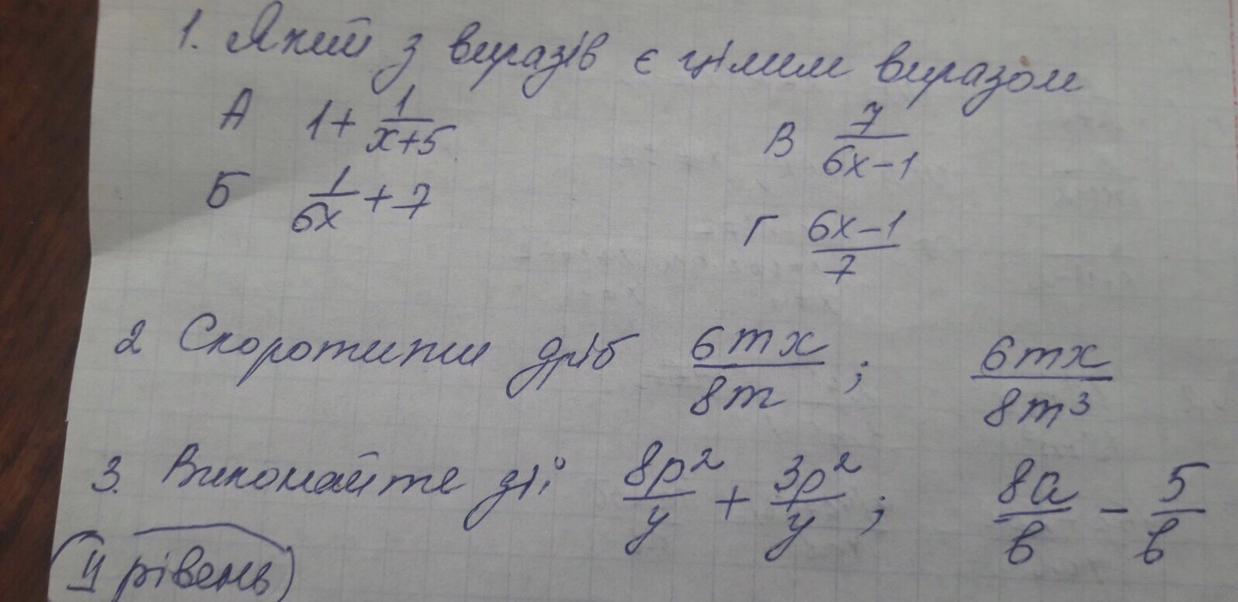 1. Який з виразів є цілим виразом
А 1 + 1/(x+5) В 7/(6x-1)
Б 1/(6x) + 7 Г (6x-1)/7
2 Скоротити дріб 6mx/8m ; 6mx/8m³
3. Виконайте дії 8p²/y + 3p²/y ; 8a/b - 5/b
II рівень